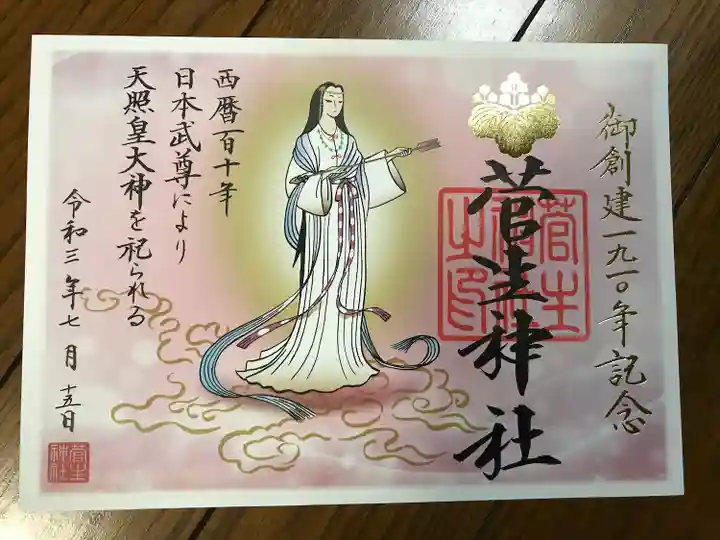 御創建一九一〇年記念
菅生神社
菅生神社之印
西暦百十年
日本武尊により
天照皇大神を祀られる
令和三年七月十五日
菅生神社